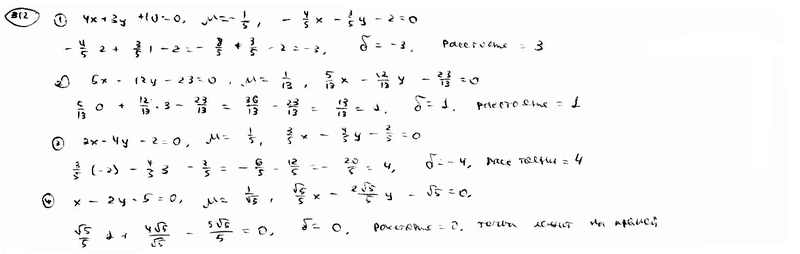 №12 ① 4x+3y+10=0, μ=-1/5, -4/5x - 3/5y - 2=0
-4/5 2 + 3/5 1 - 2 = -8/5 + 3/5 - 2 = -3, δ = -3, расстояние = 3
② 5x - 12y - 23=0, μ= 1/13, 5/13 x - 12/13 y - 23/13 =0
5/13 0 + 12/13 · 3 - 23/13 = 36/13 - 23/13 = 13/13 = 1, δ= 1, расстояние = 1
③ 3x-4y-2=0, μ= 1/5, 3/5 x - 4/5 y - 2/5 =0
3/5 (-2) - 4/5 3 - 2/5 = -6/5 - 12/5 = - 20/5 = 4, δ=-4, расстояние = 4
④ x - 2y - 5=0, μ= 1/√5, √5/5 x - 2√5/5 y - √5=0,
√5/5 1 + 4√5/√5 - 5√5/5 = 0, δ= 0, расстояние = 0, точка лежит на прямой